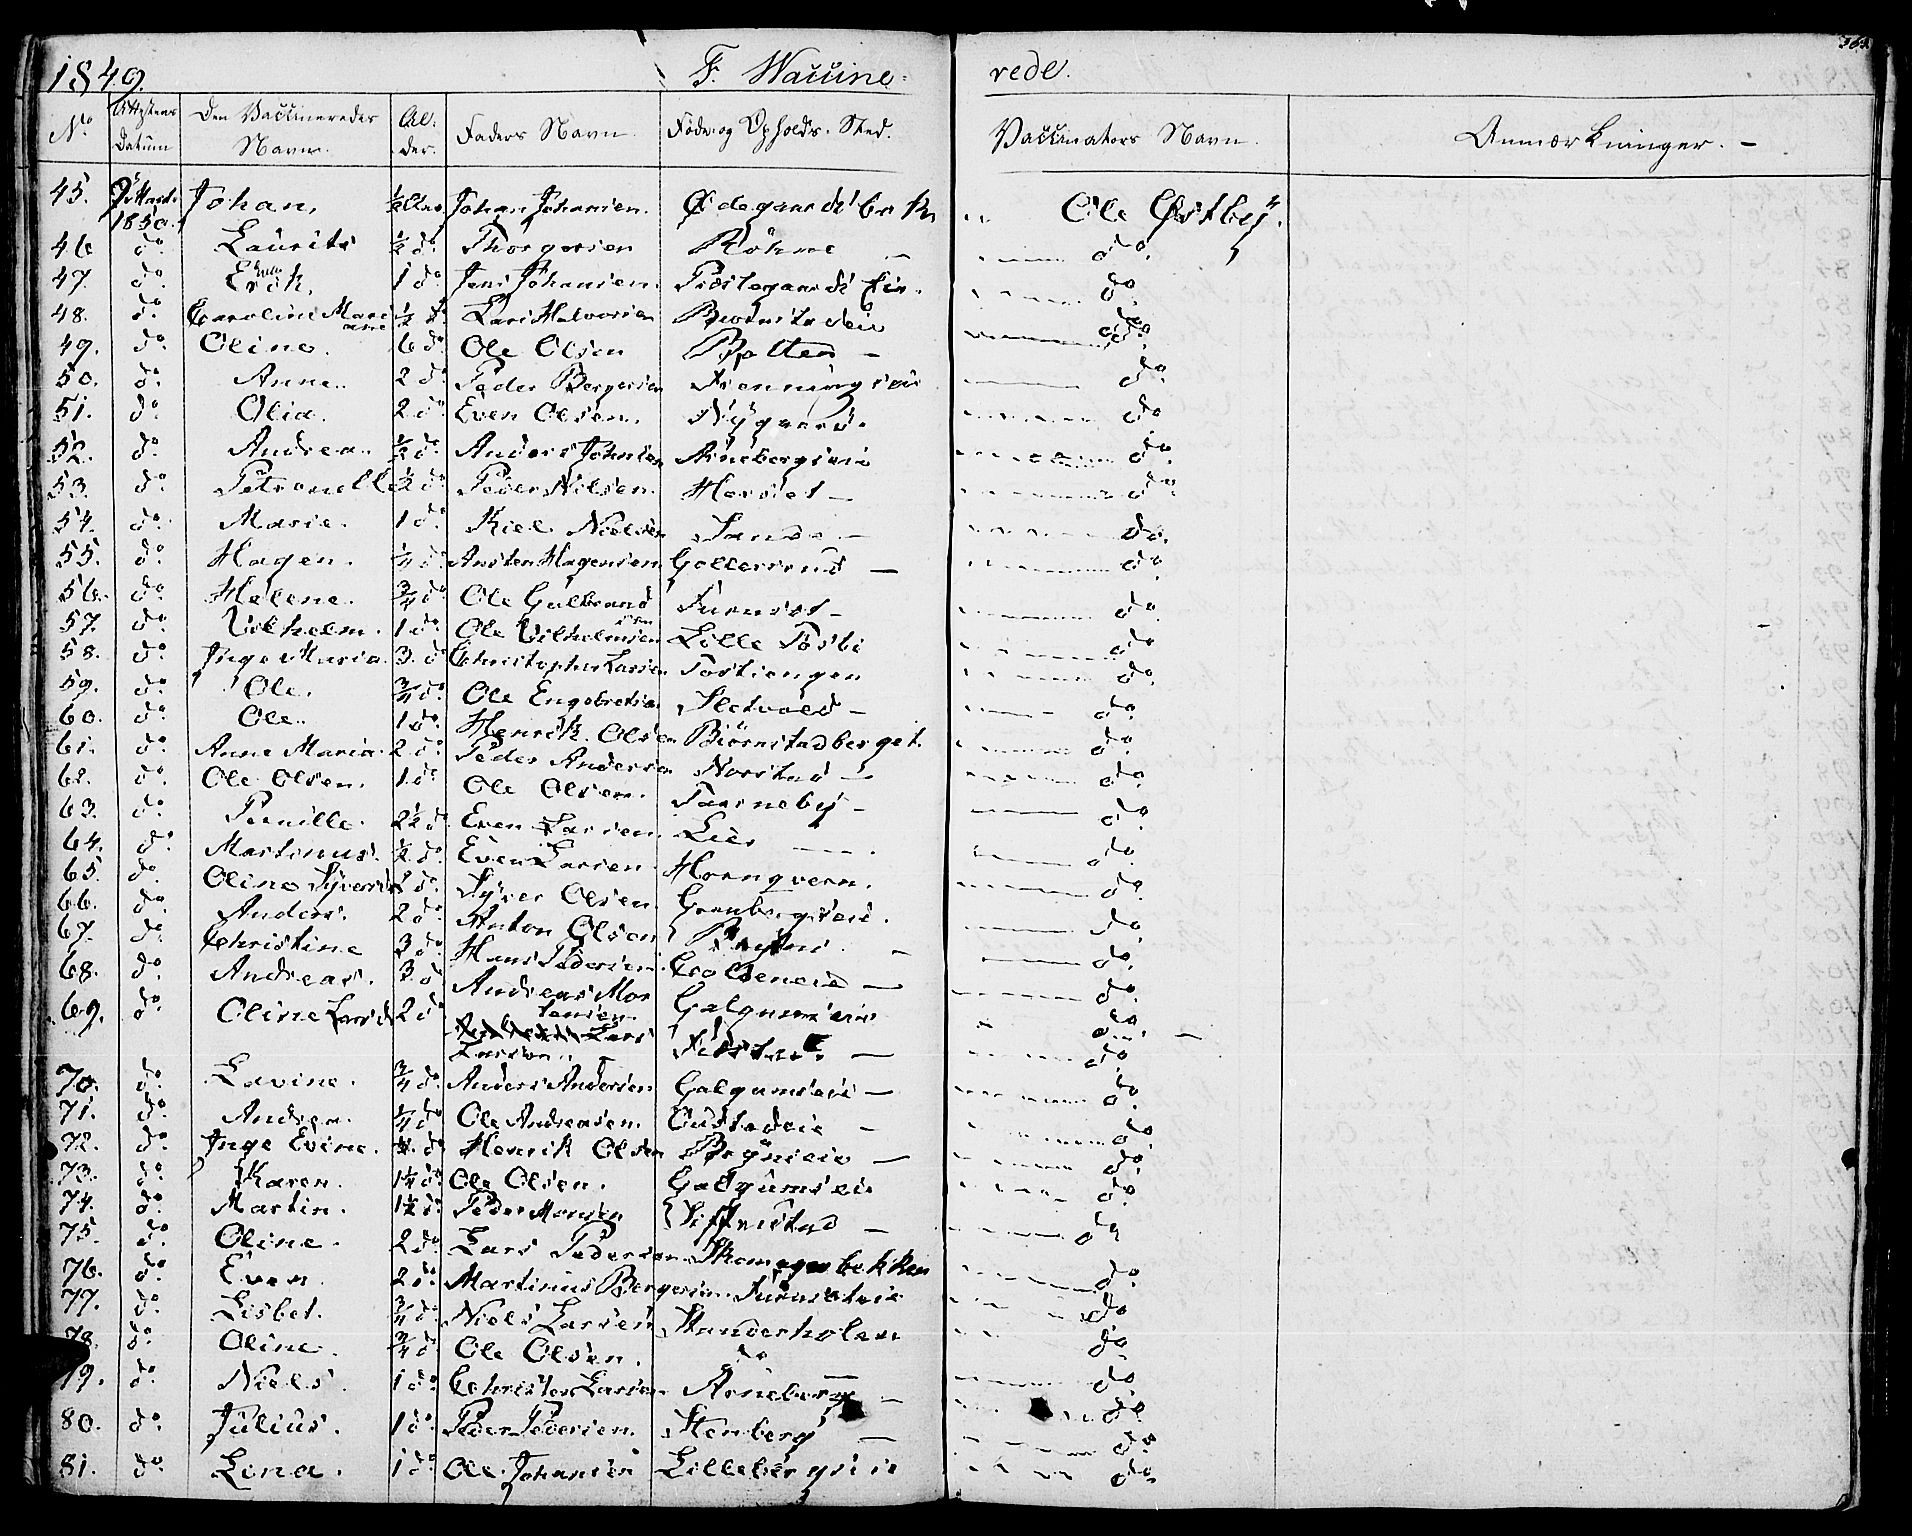 1849. F. Waccine- rede.
No Attestens Datum Den Vaccineredes Navn. Al- der. Faders Navn. Føde- og Opholds-Sted. Vaccinators Navn. Anmærkninger. -
45. 1850. Johan, ½ Johan Johansen. Ole Østbÿ.
46 do. Laurits ½ do. Thorgersen Röhne - do.
47. do. Erik, 1 do. Jens Johansen. do.
48. do. Caroline Mari ane ½ do. Lars Halvorsen do.
49. do. Oline. 6 do. Ole Olsen Botten - do.
50. do. Anne. 2 do. Peder Bergersen do.
51. do. Olia. 2 do. Even Olsen. Nÿgaard. do
52. do. Andrea. ½ do. Anders Johnsen Arnebergseie do.
53. do. Petronelle ½ do. Peder Nilsen. Hersdet - do.
54. do. Marie. 1 do. Kiel Nielsen Sande - do.
55. do. Hagen. ¼ do. Ansten Hagensen Gollersrud - do.
56. do. Helene. ¾ do. Ole Gulbrand sen Furuset - do.
57. do. Vilhelm. 1 do. Ole Vilhelmsen Lille Tøsbi do.
58. do. Inge Maria. 3. do. Christopher Larsen Tostiengen do.
59. do. Ole. ¾ do. Ole Engebretsen Sletvold - do.
60. do. Ole. 1 do. Henrik Olsen Biørnstadberget. do.
61. do. Anne Maria. 2 do. Peder Andersen Norstad - do.
62. do. Ole Olsen. 1 do. Ole Olsen. Taarnebÿ - do.
63. do. Pernille. 2½ do. Even Larsen Lier - do.
64. do. Martinus. ½ do. Even Larsen. Hornqvern. do.
65. do. Oline Syvers do. Sÿver Olsen. Grønbergseie. do.
66. do. Anders. 2 do. Anton Olsen do.
67. do. Christine 3 do. Hans Pedersen. do.
68. do. Andreas. 3 d Andreas Mor tensen. Galgumseie do.
69. do. Oline Larsd 2 do Lars Larsen do.
70. do. Lavine. ¾ do. Anders Andersen Galgumseie - do.
71. do. Andrea. ¼ do Ole Andreasen. Custadeie - do.
72. do. Inge Evine. do Henrik Olsen Brÿnieie - do.
73. do. Karen. 1½ do. Ole Olsen. Galgumseie do.
74. do. Martin. 1½ do. Peder Monsen do
75. do. Oline. 2 do. Lars Pedersen do.
76. do. Even. 2 do. Martinus Bergersen Furuseteie do
77. do. Lisbet. ¾ do. Niels Larsen Stenderholen do
78. do. Oline. ¾ do. Ole Olsen. do do
79. do. Niels. 1 do. Christen Larsen Arneberg - do.
80. do. Julius. 1 do. Peder Pedersen. Stenberg - do
81. do. Lina. 1 do. Ole Johansen Lillebergseie do.